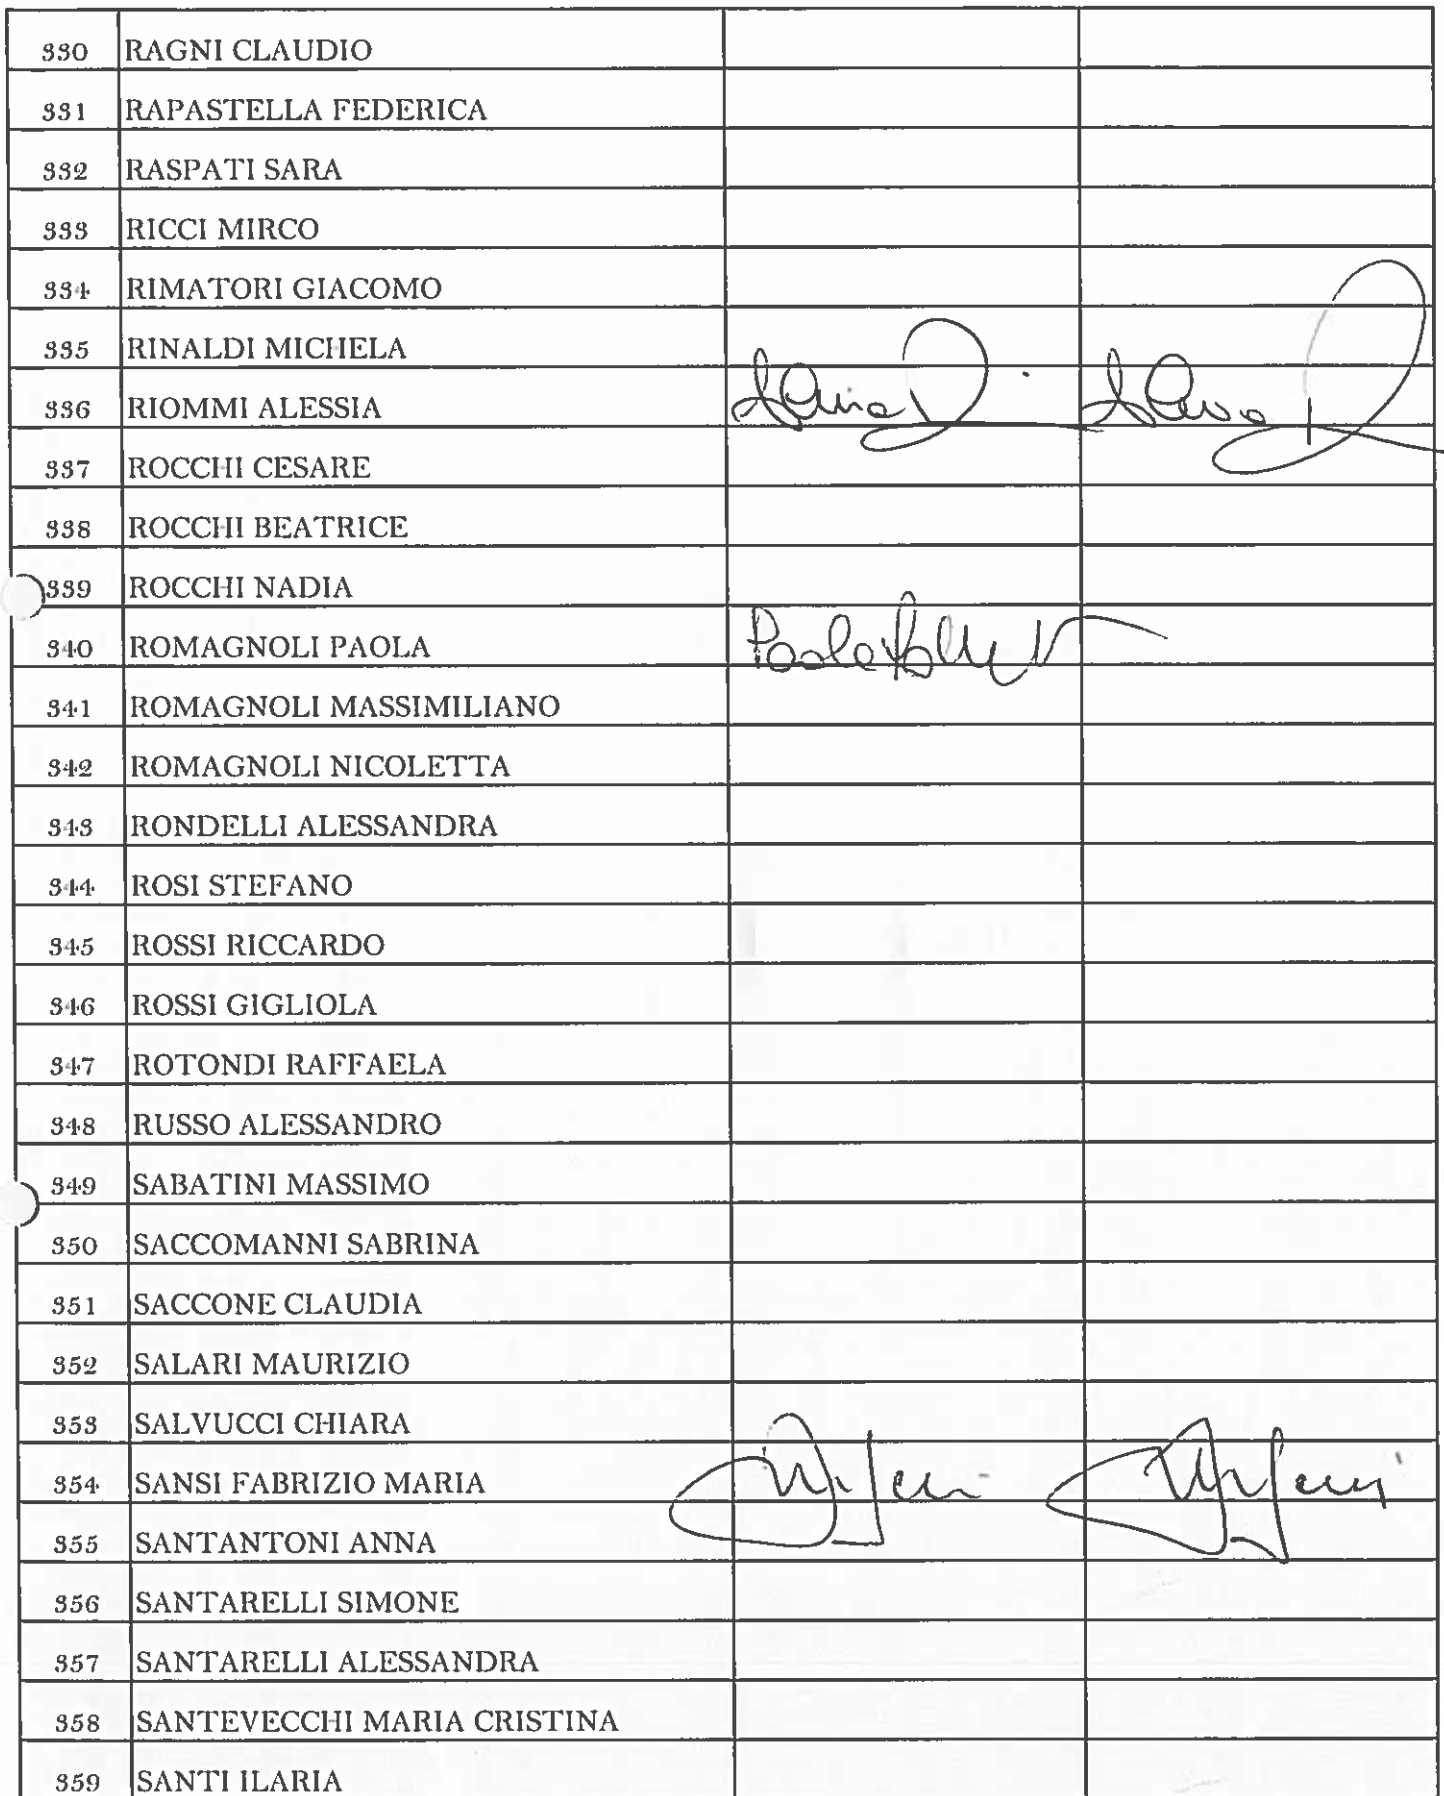 330 RAGNI CLAUDIO
331 RAPASTELLA FEDERICA
332 RASPATI SARA
333 RICCI MIRCO
334 RIMATORI GIACOMO
335 RINALDI MICHELA
336 RIOMMI ALESSIA
337 ROCCHI CESARE
338 ROCCHI BEATRICE
339 ROCCHI NADIA
340 ROMAGNOLI PAOLA Paola
341 ROMAGNOLI MASSIMILIANO
342 ROMAGNOLI NICOLETTA
343 RONDELLI ALESSANDRA
344 ROSI STEFANO
345 ROSSI RICCARDO
346 ROSSI GIGLIOLA
347 ROTONDI RAFFAELA
348 RUSSO ALESSANDRO
349 SABATINI MASSIMO
350 SACCOMANNI SABRINA
351 SACCONE CLAUDIA
352 SALARI MAURIZIO
353 SALVUCCI CHIARA
354 SANSI FABRIZIO MARIA
355 SANTANTONI ANNA
356 SANTARELLI SIMONE
357 SANTARELLI ALESSANDRA
358 SANTEVECCHI MARIA CRISTINA
359 SANTI ILARIA